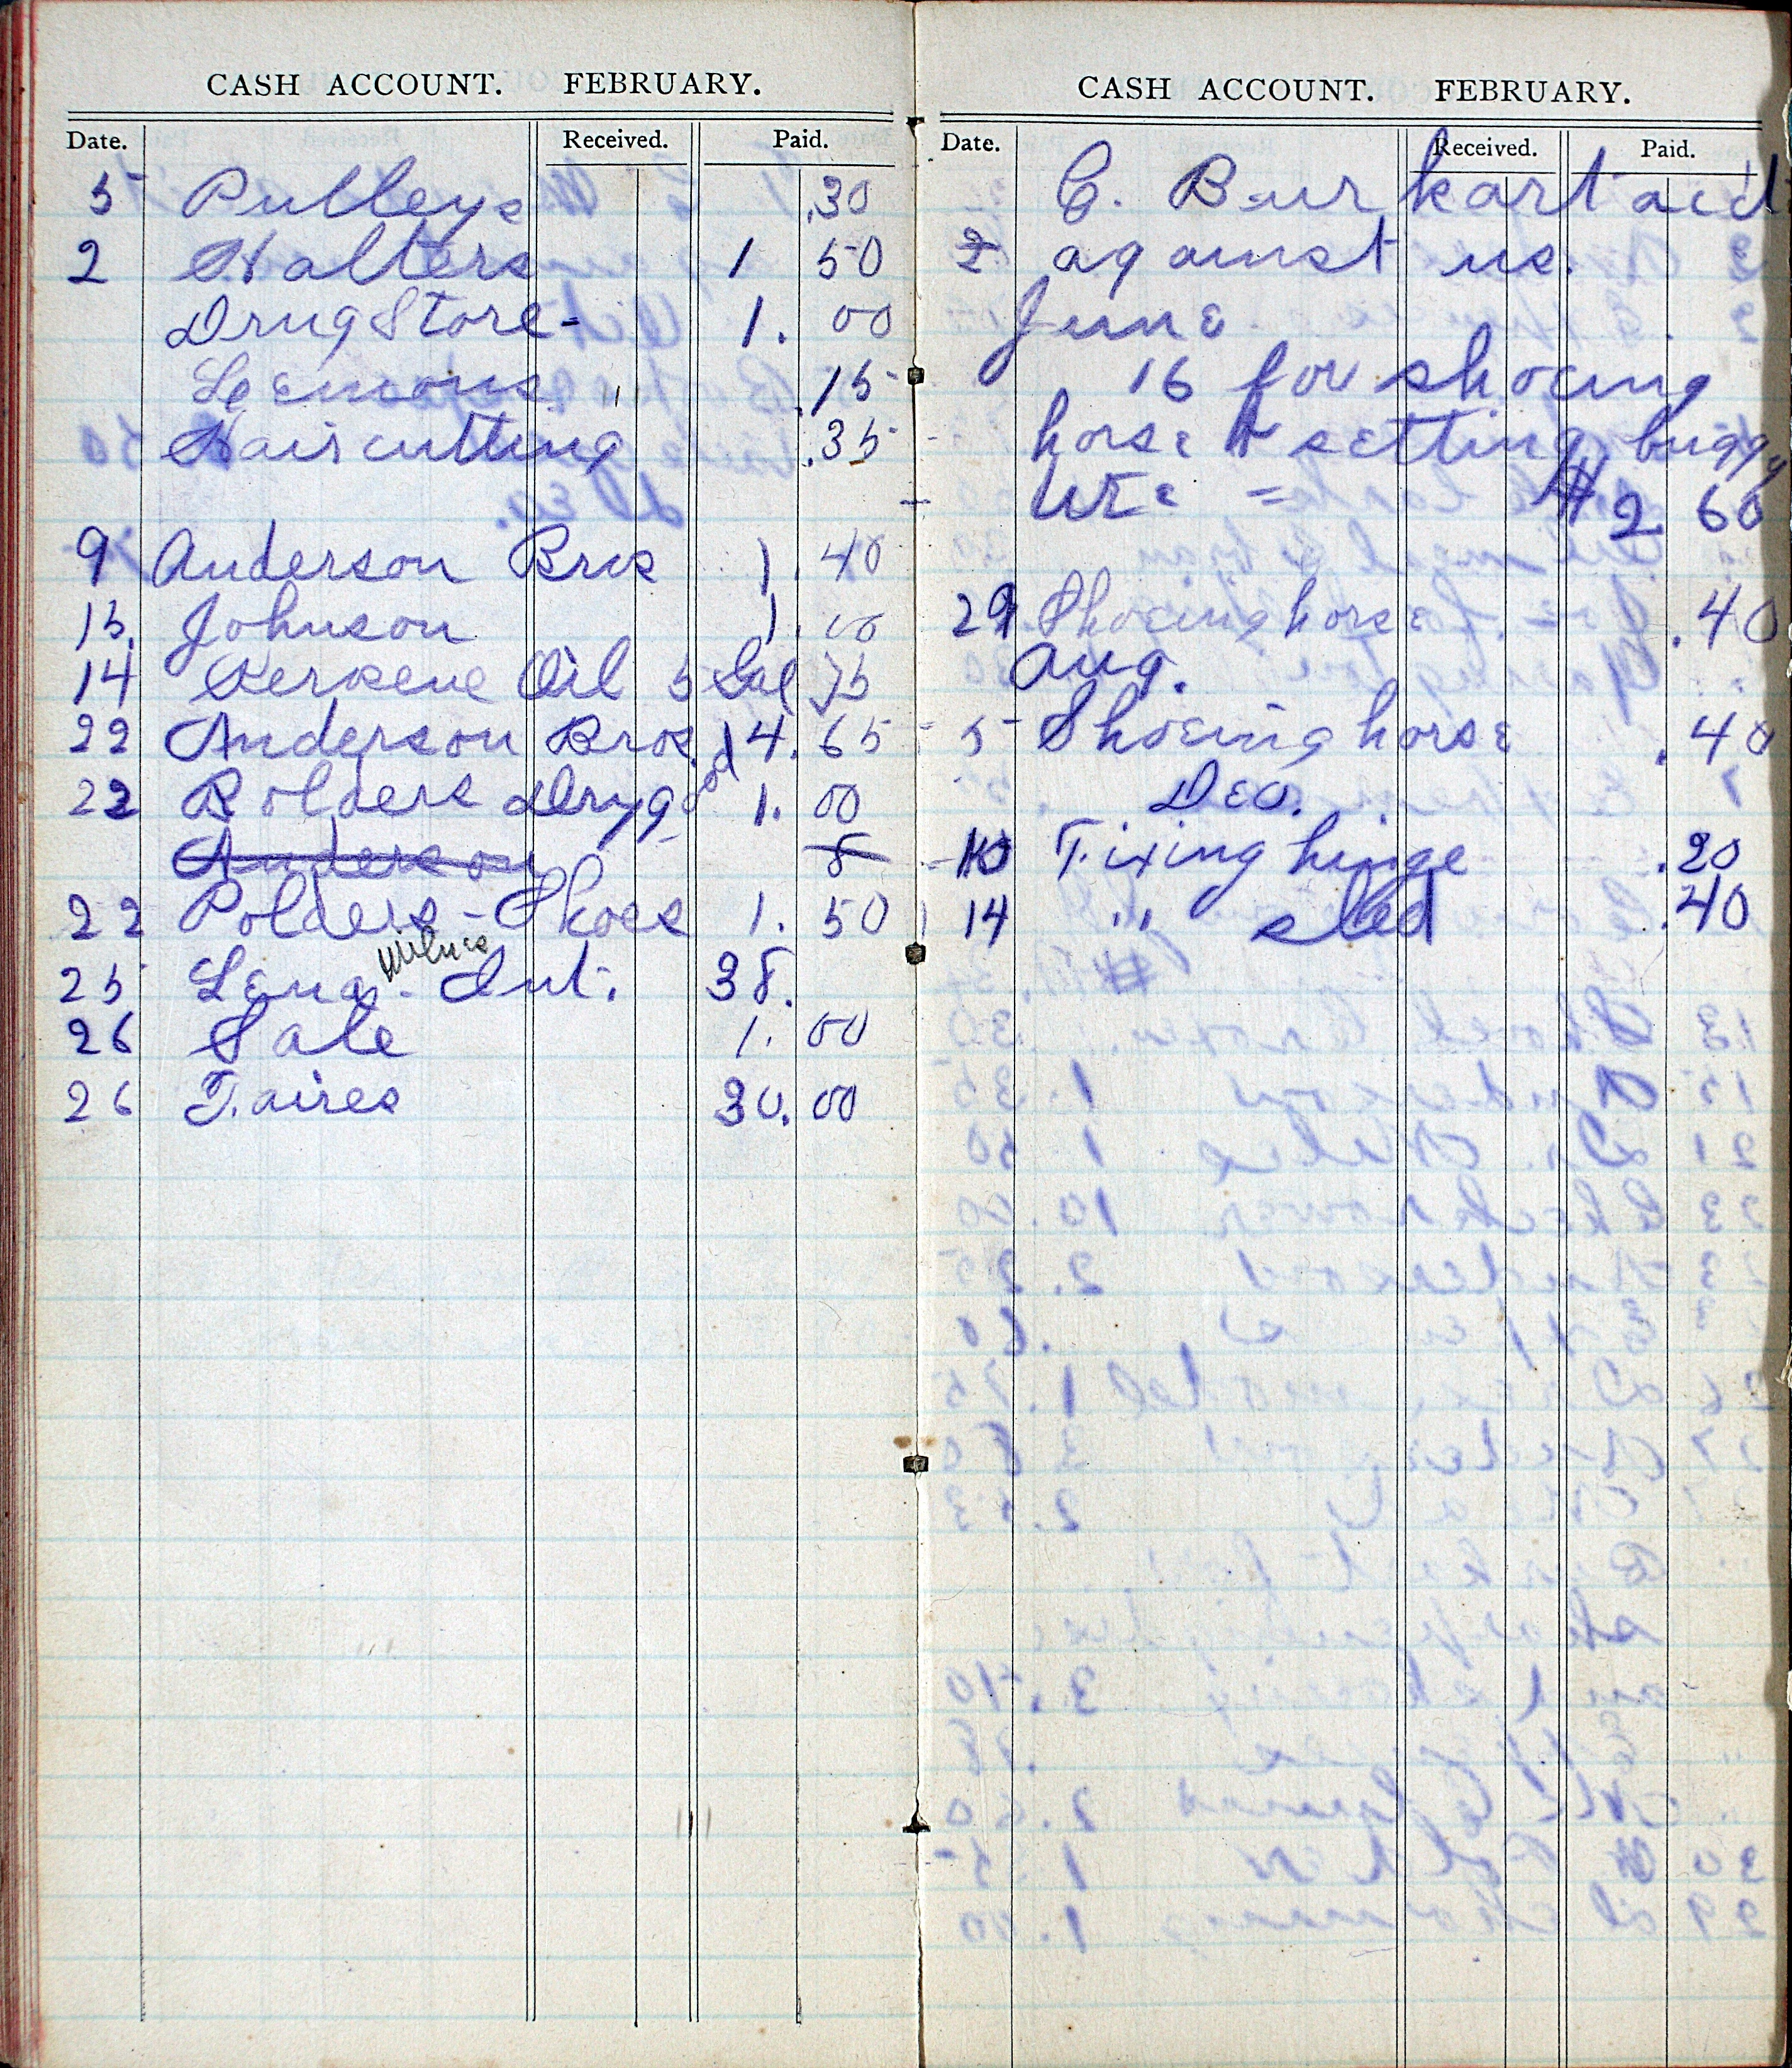 CASH ACCOUNT. FEBRUARY.
Date. Received. Paid.
5 Pulleys .30
2 Halters 1 50
Drug Store - 1. 00
Lemons .15
Hair cutting .35
9 Anderson Bros 1.40
15. Johnson 1.00
14 Kerosene Oil 5 Gal 75
22 Anderson Bros. 14.65
22 Polders Dry good 1. 00
Anderson 8
22 Polders - Shoes 1. 50
25 Lena Milnes - Int. 38.
26 Sale 1. 00
26 Taires 30. 00
CASH ACCOUNT. FEBRUARY.
Date. Received. Paid.
C. Burkart acct
2 against us.
June
16 for shoeing
horse & setting buggy
tire = $2 60
29 Shoeing horse .40
Aug.
5 Shoeing horse .40
Dec.
10 Fixing hinge .20
14 " sled .40